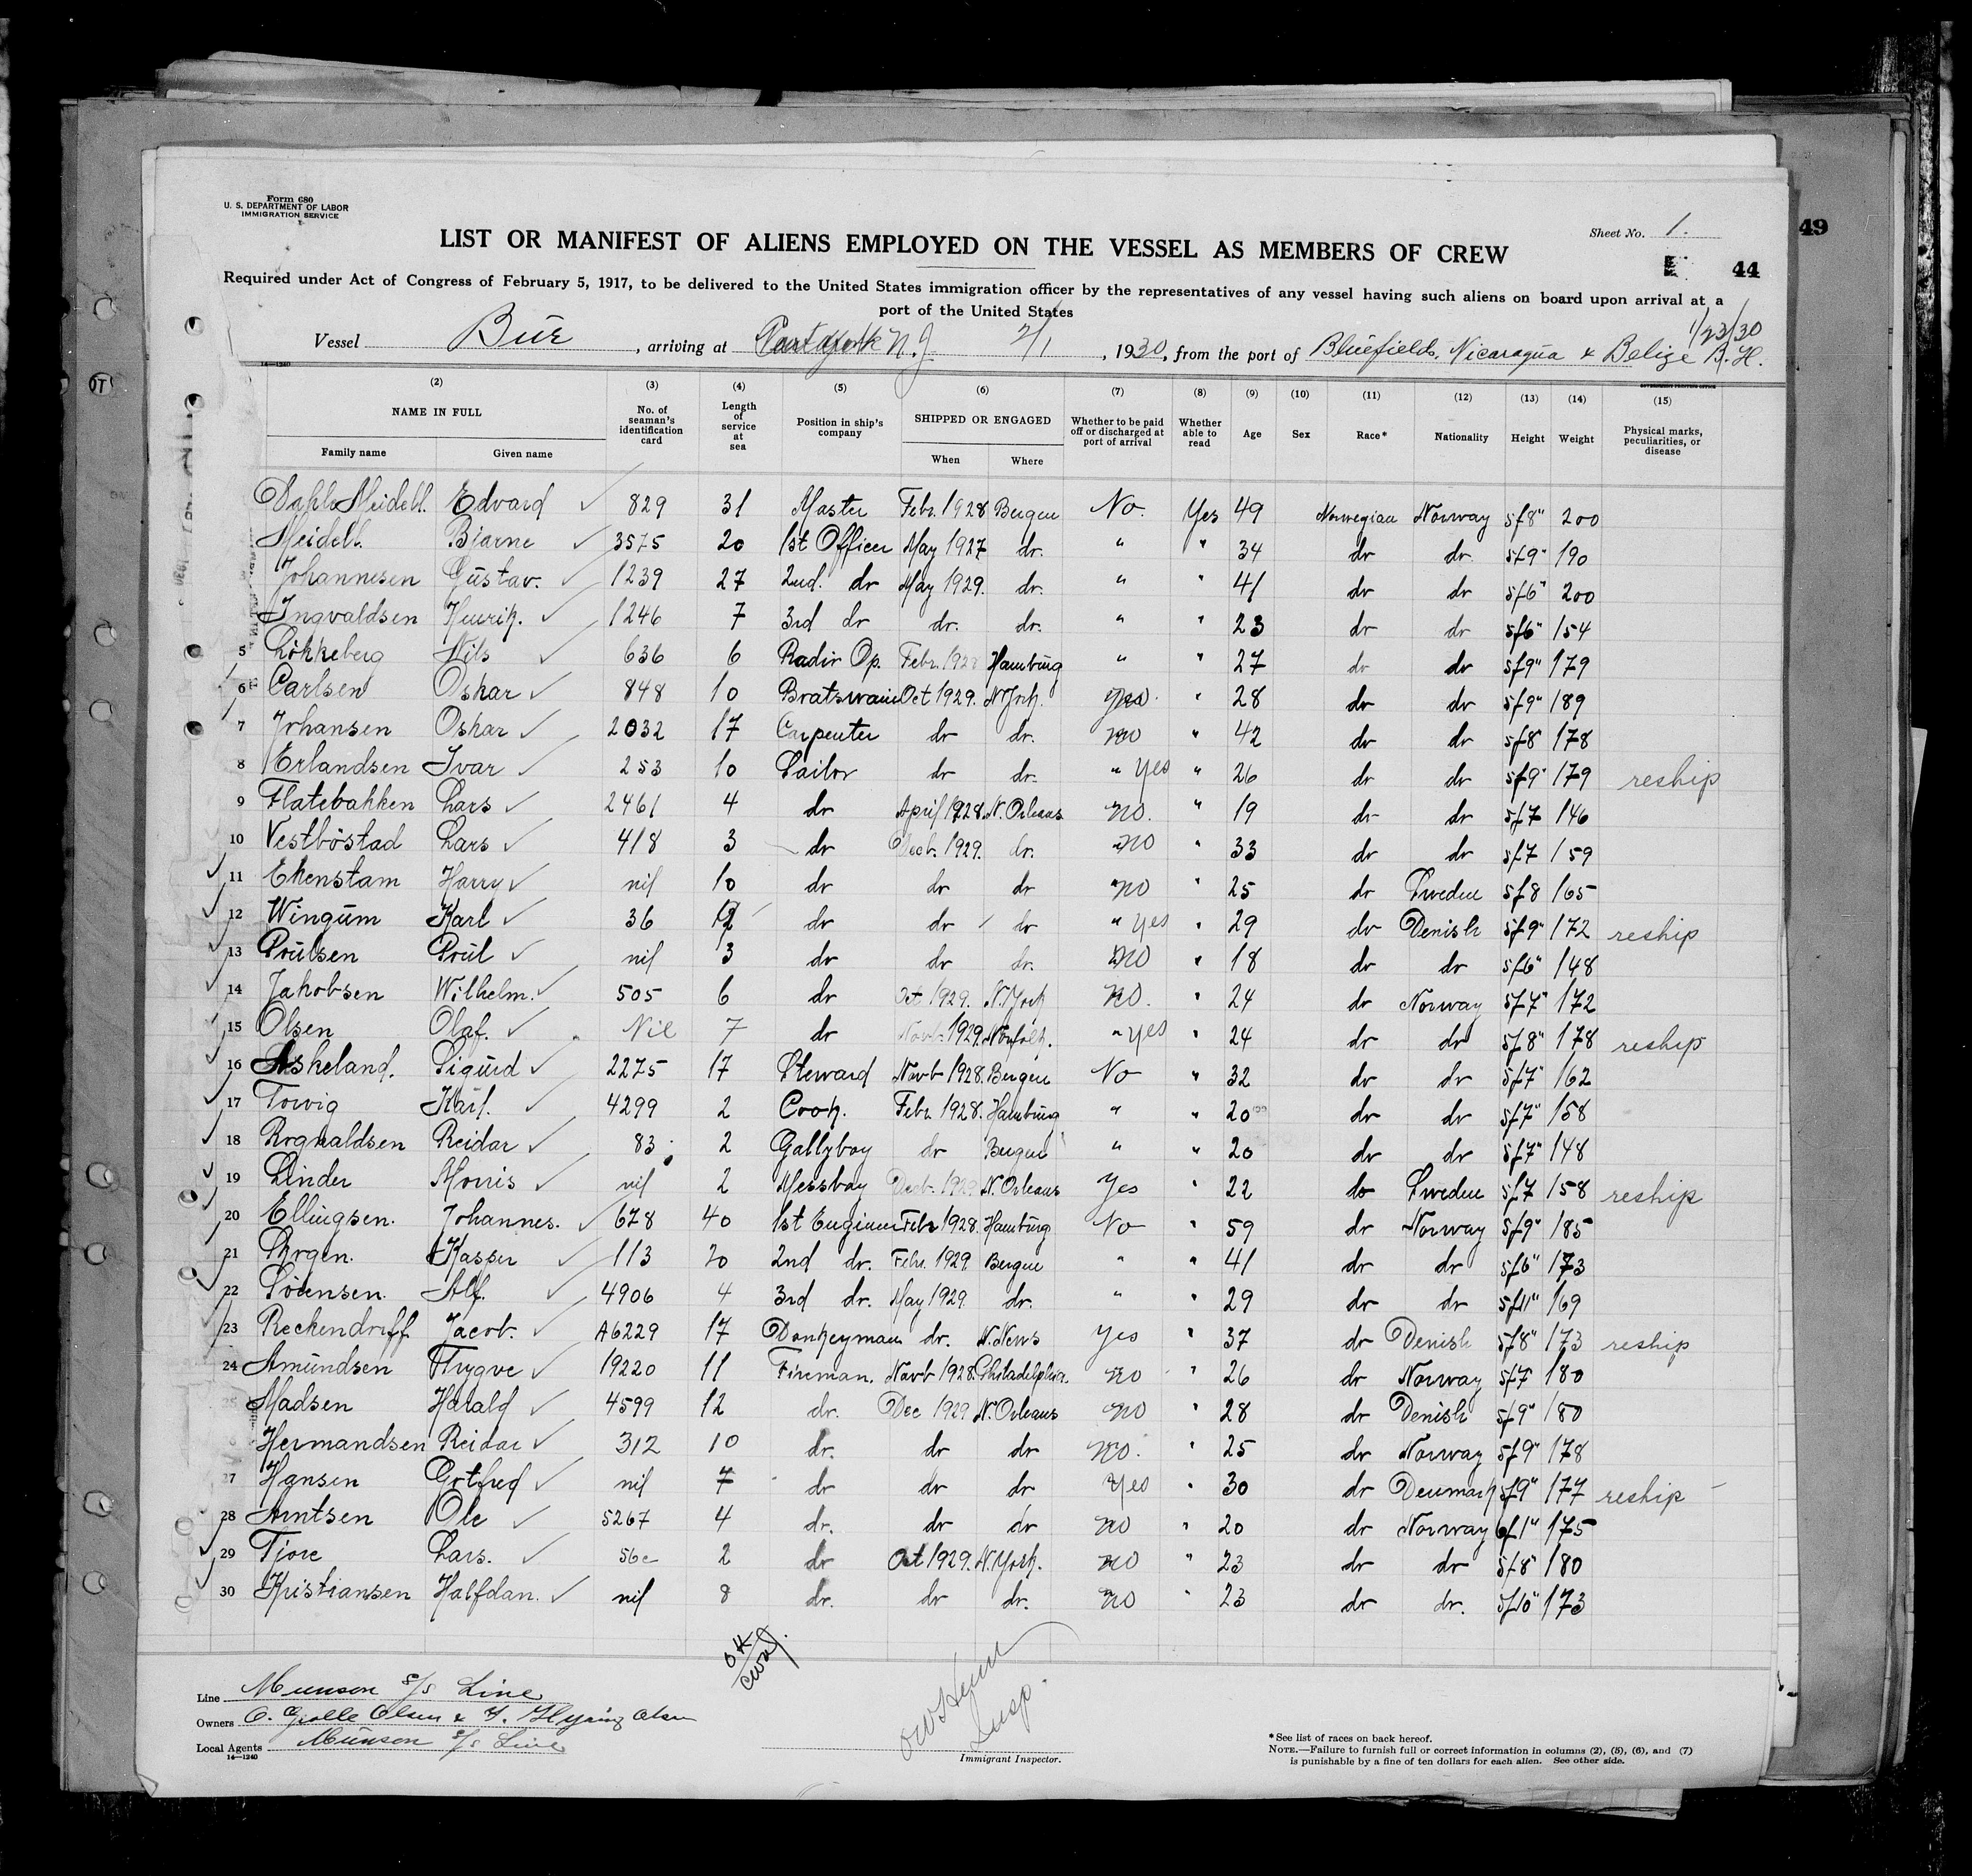 Form 680
U. S. DEPARTMENT OF LABOR
IMMIGRATION SERVICE
Sheet No. 1.
49
LIST OR MANIFEST OF ALIENS EMPLOYED ON THE VESSEL AS MEMBERS OF CREW
44
Required under Act of Congress of February 5, 1917, to be delivered to the United States immigration officer by the representatives of any vessel having such aliens on board upon arrival at a
port of the United States
1/23/30
Vessel Bur, arriving at N.J. 2/1, 1930, from the port of Bluefields, Nicaragua & Belize B.H.
14—1240
(2) (3) (4) (5) (6) (7) (8) (9) (10) (11) (12) (13) (14) (15)
NAME IN FULL No. of seaman's identification card Length of service at sea Position in ship's company SHIPPED OR ENGAGED Whether to be paid off or discharged at port of arrival Whether able to read Age Sex Race* Nationality Height Weight Physical marks, peculiarities, or disease
Family name Given name When Where
Dahle Meidell. Edvard 829 31 Master Febr. 1928 Bergen No. Yes 49 Norwegian Norway 5f8" 200
Meidell. Bjarne 3575 20 1st Officer May 1927 do. " " 34 do do 5f9" 190
Johannesen Gustav. 1239 27 2nd. do May 1929. do. " " 41 do do 5f6" 200
Ingvaldsen Henrik. 1246 7 3rd do do. do. " " 23 do do 5f6" 154
5 Lökkeberg Nils 636 6 Radio Op. Febr. 1928 Hamburg " " 27 do do 5f9" 179
6 Carlsen Oskar 848 10 Boatswain Oct 1929. N.York. yes. " 28 do do 5f9" 189
7 Johansen Oskar 2032 17 Carpenter do do. no " 42 do do 5f8 178
8 Erlandsen Ivar 253 10 Sailor do do. " yes " 26 do do 5f9" 179 reship
9 Flatebakken Lars 2461 4 do April 1928. N. Orleans no. " 19 do do 5f7 146
10 Vestböstad Lars 418 3 do Decb. 1929. do. no " 33 do do 5f7 159
11 Ekenstam Harry nil 10 do do do no " 25 do Sweden 5f8 165
12 Wingum Karl 36 12 do do do " yes " 29 do Denish 5f9" 172 reship
13 Poulsen Poul nil 3 do do do. no " 18 do do 5f6" 148
14 Jakobsen Wilhelm. 505 6 do Oct 1929. N.York no. " 24 do Norway 5f7" 172
15 Olsen Olaf. Nil 7 do Novb. 1929. Norfolk. " yes " 24 do do 5f8" 178 reship
16 Askeland. Sigurd 2275 17 Steward Novb 1928. Bergen No " 32 do do 5f7" 162
17 Torvig Karl. 4299 2 Cook. Febr. 1928. Hamburg " " 20 do do 5f7" 158
18 Rognaldsen Reidar 83 2 Gallyboy do Bergen " " 20 do do 5f7" 148
19 Linder Morris nil 2 Messboy Decb. 1929 N. Orleans Yes " 22 do Sweden 5f7 158 reship
20 Ellingsen. Johannes. 678 40 1st Engineer Febr 1928. Hamburg No " 59 do Norway 5f9" 185
21 Kasper 113 20 2nd do. Febr. 1929 Bergen " " 41 do do 5f6" 173
22 Sörensen. Alf. 4906 4 3rd do. May 1929. do. " " 29 do do 5f11" 169
23 Reckendorff Jacob. A6229 17 Donkeyman do. N. News Yes " 37 do Denish 5f8" 173 reship
24 Amundsen Trygve 19220 11 Fireman. Novb 1928. Philadelphia. no " 26 do Norway 5f7 180
25 Madsen Harald 4599 12 do. Dec 1929 N. Orleans no " 28 do Denish 5f9" 180
Hermandsen Reidar 312 10 do. do do no. " 25 do Norway 5f9" 178
27 Hansen Gotfred nil 7 do do do yes " 30 do Denmark 5f9" 177 reship
28 Arntsen Ole 5267 4 do. do do no " 20 do Norway 6f1" 175
29 Tjore Lars. 2 do Oct 1929. N.York. no " 23 do do 5f8" 180
30 Kristiansen Halfdan. nil 8 do. do do. no " 23 do do. 5f10" 173
OK
Line Munson S/S Line
Owners O. Grolle Olsen & Olsen
Local Agents Munson S/S Line
14—1240
Insp.
Immigrant Inspector.
*See list of races on back hereof.
NOTE.—Failure to furnish full or correct information in columns (2), (5), (6), and (7)
is punishable by a fine of ten dollars for each alien. See other side.